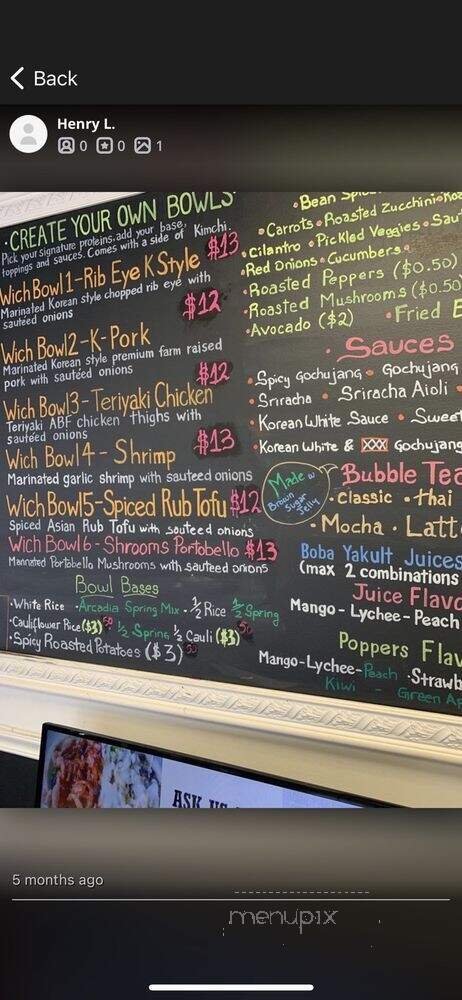 Back
Henry L.
0 0 1
CREATE YOUR OWN BOWLS
Pick your signature proteins, add your base,
toppings and sauces. Comes with a side of Kimchi.
Wich Bowl 1-Rib Eye K Style $13
Marinated Korean style chopped rib eye with
sautéed onions
Wich Bowl 2-K-Pork $12
Marinated Korean style premium farm raised
pork with sautéed onions
Wich Bowl 3-Teriyaki Chicken $12
Teriyaki ABF chicken thighs with
sautéed onions
Wich Bowl 4 - Shrimp $13
Marinated garlic shrimp with sauteed onions
Wich Bowl 5-Spiced Rub Tofu $12
Spiced Asian Rub Tofu with sauteed onions
Wich Bowl 6 - Shrooms Portobello $13
Marinated Portobello Mushrooms with sauteed onions
Bowl Bases
•White Rice •Arcadia Spring Mix • ½ Rice ½ Spring
•Cauliflower Rice ($3) 50 ½ Spring ½ Cauli ($3) 50
•Spicy Roasted Potatoes ($3) 50
•Bean
•Carrots •Roasted Zucchini
•Cilantro •Pickled Veggies
•Red Onions •Cucumbers
•Roasted Peppers ($0.50)
•Roasted Mushrooms ($0.50
•Avocado ($2) •Fried
• Sauces
•Spicy Gochujang • Gochujang
•Sriracha • Sriracha Aioli •
•Korean White Sauce • Sweet
•Korean White & XXX Gochujang
Made w
Brown
Sugar
Jelly
Bubble Tea
•classic •thai
•Mocha •
Boba Yakult Juices
(max 2 combinations
Juice
Mango - Lychee - Peach
Poppers
Mango-Lychee-Peach
Kiwi - Green
ASK
5 months ago
menupix